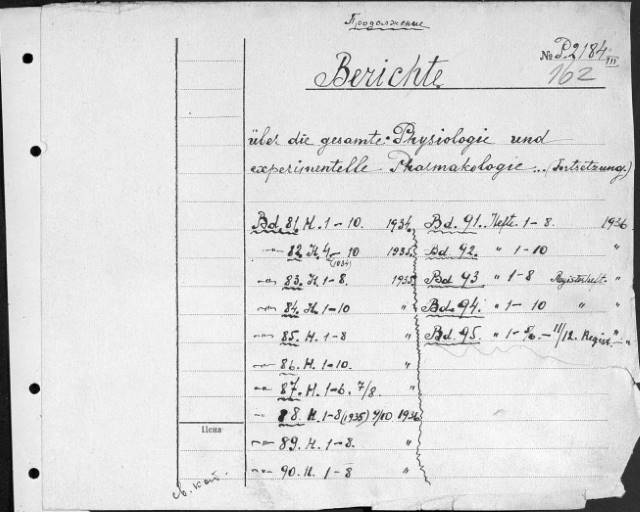 Продолжение
№ P.2184 III
162
Berichte
über die gesamte Physiologie und
experimentelle Pharmakologie... (Fortsetzung.)
Bd. 81. H. 1-10. 1934.
" 82. H. 4-10 1935.
(1934)
" 83. H. 1-8. 1935
" 84. H. 1-10 "
" 85. H. 1-8 "
" 86. H. 1-10. "
" 87. H. 1-6. 7/8. "
" 88. H. 1-8 (1935) 9/10 1936
" 89. H. 1-8. "
" 90. H. 1-8 "
Bd. 91. Hefte 1-8. 1936
Bd. 92. " 1-10 "
Bd 93 " 1-8 Registerheft. "
Bd. 94. " 1-10 " "
Bd. 95. " 1- - 11/12. Regist. "
Цена
см. кат.